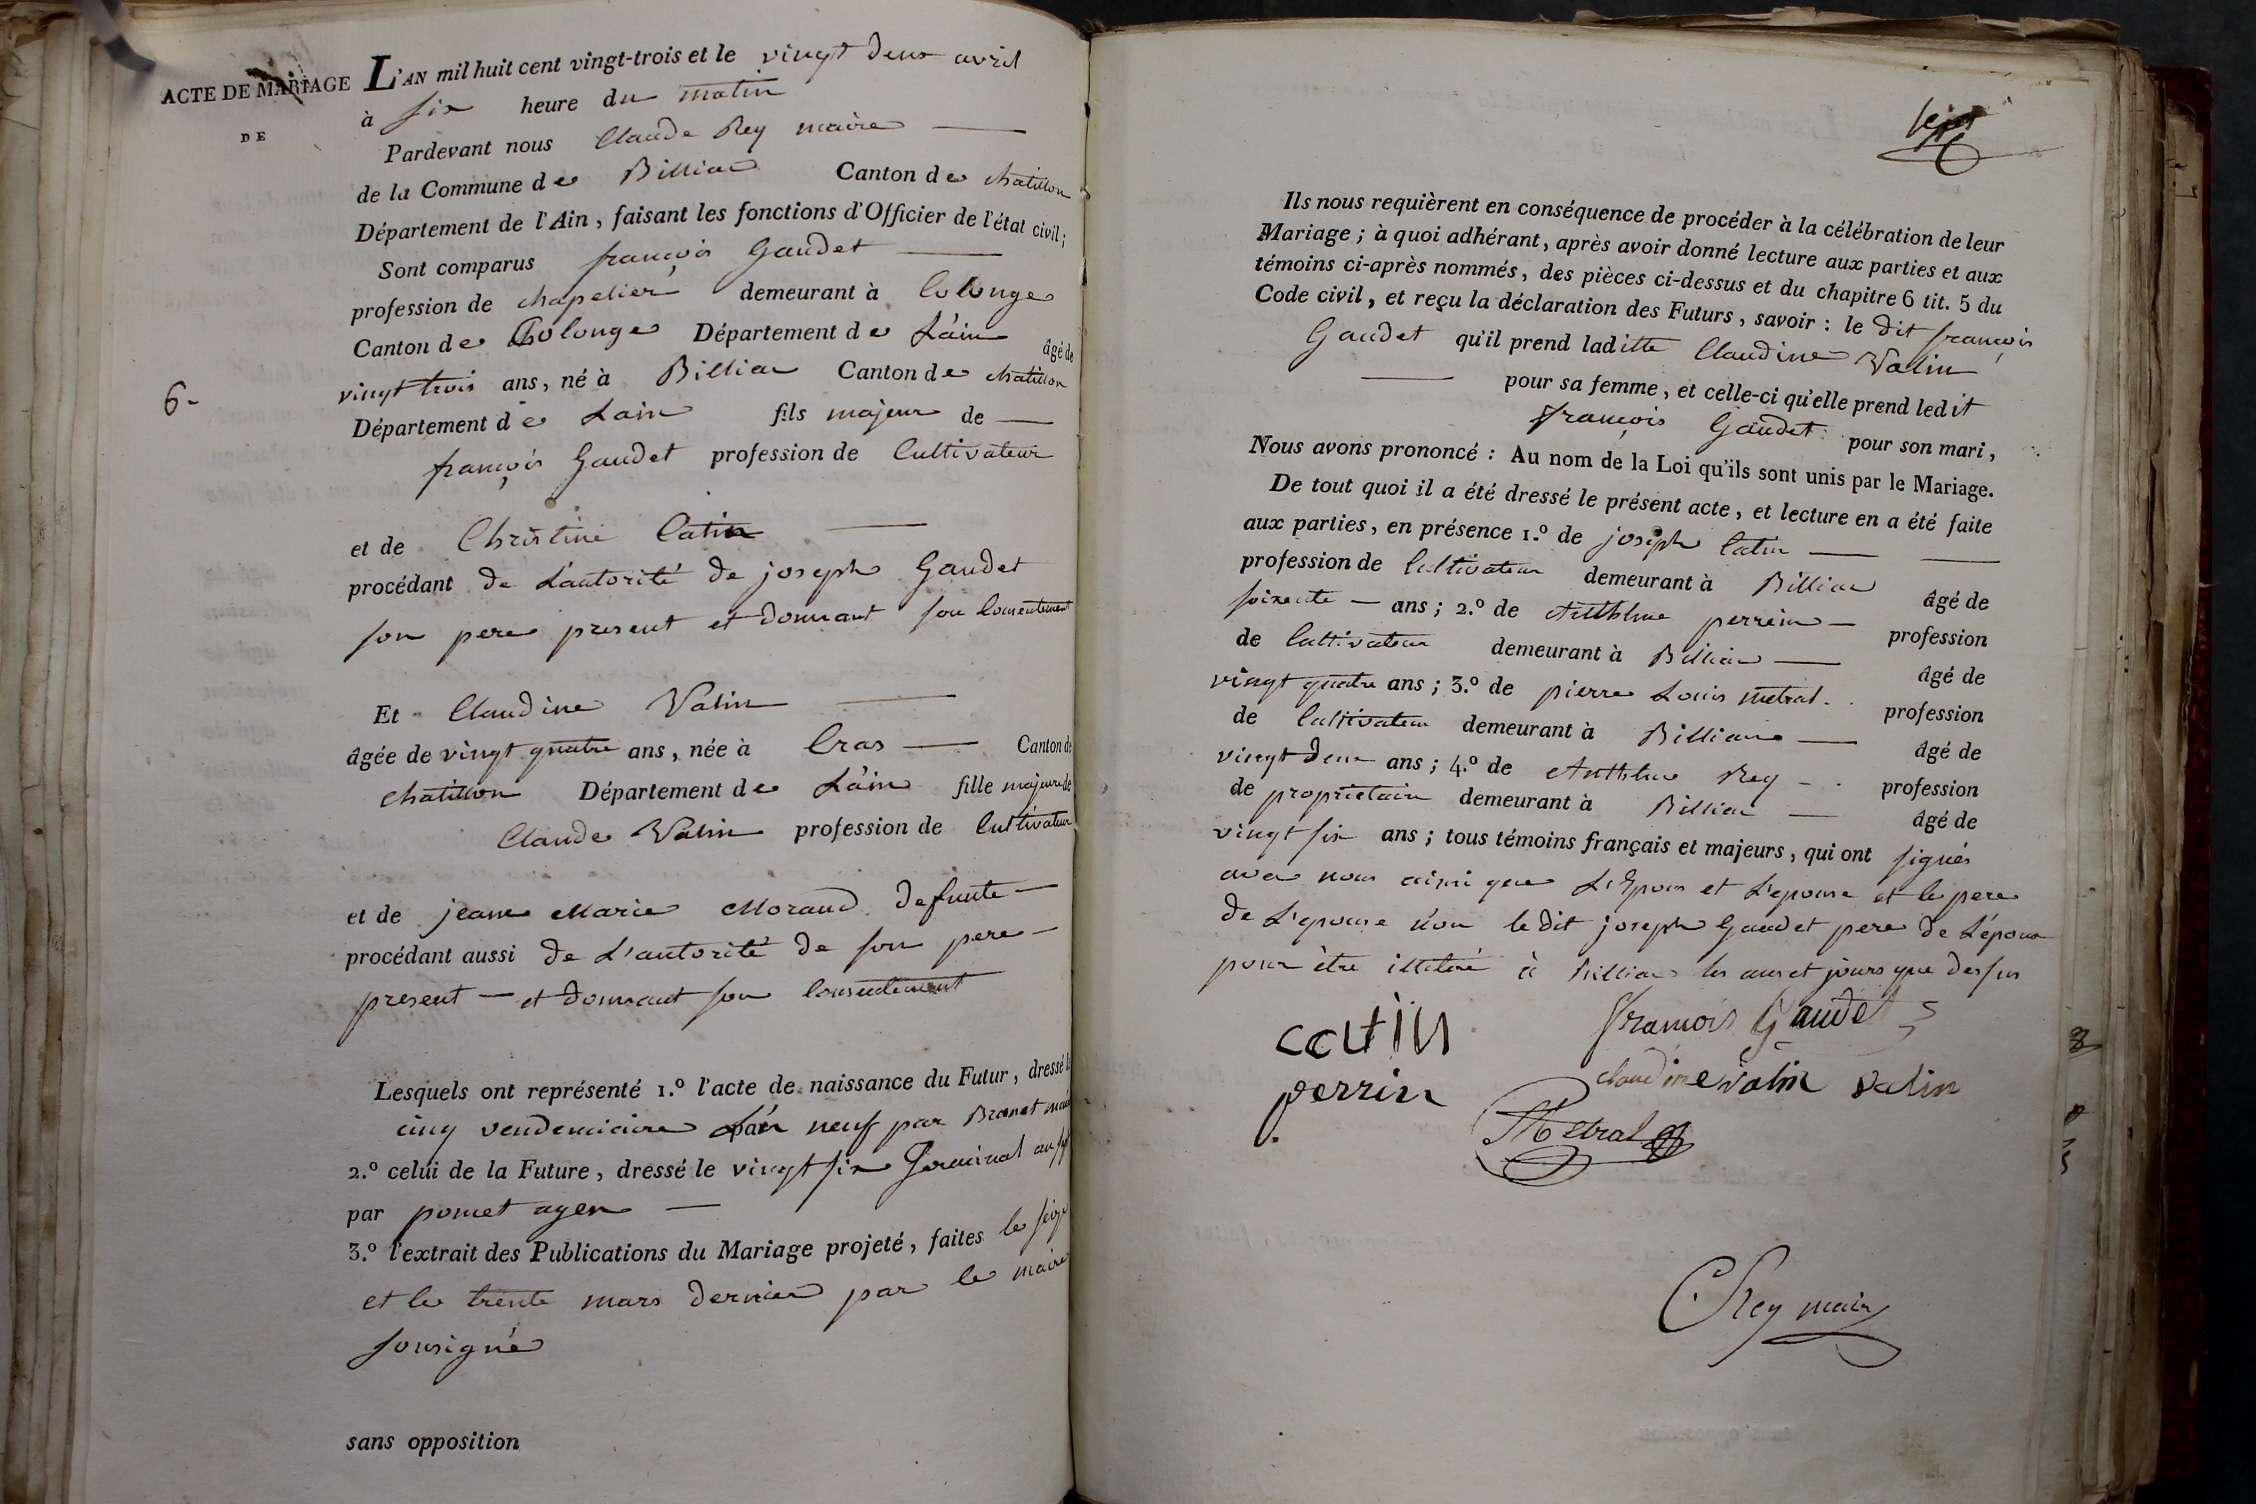 ACTE DE MARIAGE
DE
6-
L'AN mil huit cent vingt-trois et le vingt deux avril
à six heure du matin
Pardevant nous Claude Rey maire
de la Commune de Billiac Canton de chatillon
Département de l'Ain, faisant les fonctions d'Officier de l'état civil;
Sont comparus françois Gaudet
profession de chapelier demeurant à Collonge
Canton de Collonge Département de L'ain âgé de
vingt trois ans, né à Billiac Canton de chatillon
Département de Lain fils majeur de
françois Gaudet profession de Cultivateur
et de Christine Catin
procédant de L'autorité de joseph Gaudet
son pere present et donnant son Consentement
Et Claudine Valin
âgée de vingt quatre ans, née à Cras Canton de
chatillon Département de L'ain fille majeure de
Claude Valin profession de Cultivateur
et de jeane Marie Morand defunte
procédant aussi de L'autorité de son pere
present et donnant son Consentement
Lesquels ont représenté 1.º l'acte de naissance du Futur, dressé le
cinq vendemiaire L'an neuf par
2.º celui de la Future, dressé le vingt six Germinal an
par pomet agen
3.º l'extrait des Publications du Mariage projeté, faites le
et le trente mars dernier par le maire
sousigné
sans opposition
Ils nous requièrent en conséquence de procéder à la célébration de leur
Mariage; à quoi adhérant, après avoir donné lecture aux parties et aux
témoins ci-après nommés, des pièces ci-dessus et du chapitre 6 tit. 5 du
Code civil, et reçu la déclaration des Futurs, savoir: le dit françois
Gaudet qu'il prend laditte Claudine Valin
pour sa femme, et celle-ci qu'elle prend ledit
françois Gaudet pour son mari,
Nous avons prononcé: Au nom de la Loi qu'ils sont unis par le Mariage.
De tout quoi il a été dressé le présent acte, et lecture en a été faite
aux parties, en présence 1.º de joseph Catin
profession de Cultivateur demeurant à Billiac âgé de
soixente ans; 2.º de Anthlme perrin profession
de Cultivateur demeurant à Billiac âgé de
vingt quatre ans; 3.º de pierre Louis metral profession
de Cultivateur demeurant à Billiac âgé de
vingt deux ans; 4.º de Anthlme Rey profession
de proprietaire demeurant à Billiac âgé de
vingt six ans; tous témoins français et majeurs, qui ont signés
avec nous ainsi que L'Epoux et L'epouse et le pere
de L'epouse non le dit joseph Gaudet pere de L'époux
pour être illitéré à Billiac les an et jours que dessus
catin
François Gaudet
perrin
claudine valin valin
Metral
C Rey maire